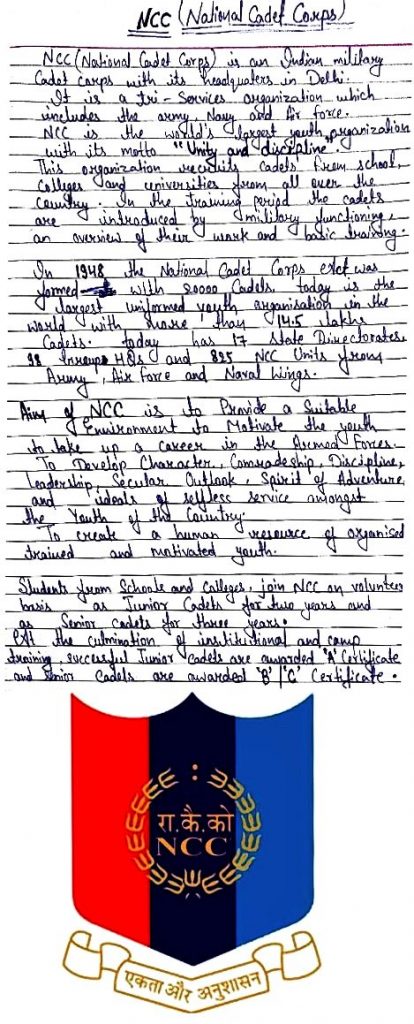 NCC (National Cadet Corps)
NCC (National Cadet Corps) is an Indian military
Cadet corps with its headquaters in Delhi.
It is a tri-Services organization which
includes the army, Navy and Air force.
NCC is the world's largest youth organization
with its motto "Unity and discipline".
This organization recruits cadets from school,
Colleges and universities from all over the
Country. In the training period the cadets
are introduced by military functioning,
an overview of their work and basic training.
In 1948 the National Cadet Corps Act was
formed with 20000 Cadets. today is the
largest uniformed youth organisation in the
world with more than 14.5 lakhs
Cadets. today has 17 State Directorates
98 Groups HQs and 825 NCC Units from
Army, Air Force and Naval Wings.
Aim of NCC is to Provide a Suitable
Environment to Motivate the youth
to take up a career in the Armed Forces.
To Develop Character, Comradeship, Discipline,
Leadership, Secular Outlook, Spirit of Adventure,
and ideals of selfless service amongst
the Youth of the Country.
To create a human resource of organised
trained and motivated youth.
Students from Schools and Colleges, join NCC on volunteer
basis as Junior Cadets for two years and
as Senior cadets for three years.
At the culmination of institutional and camp
training, successful Junior cadets are awarded 'A' Certificate
and Senior Cadets are awarded 'B'/'C' Certificate.
रा.कै.को
NCC
एकता और अनुशासन